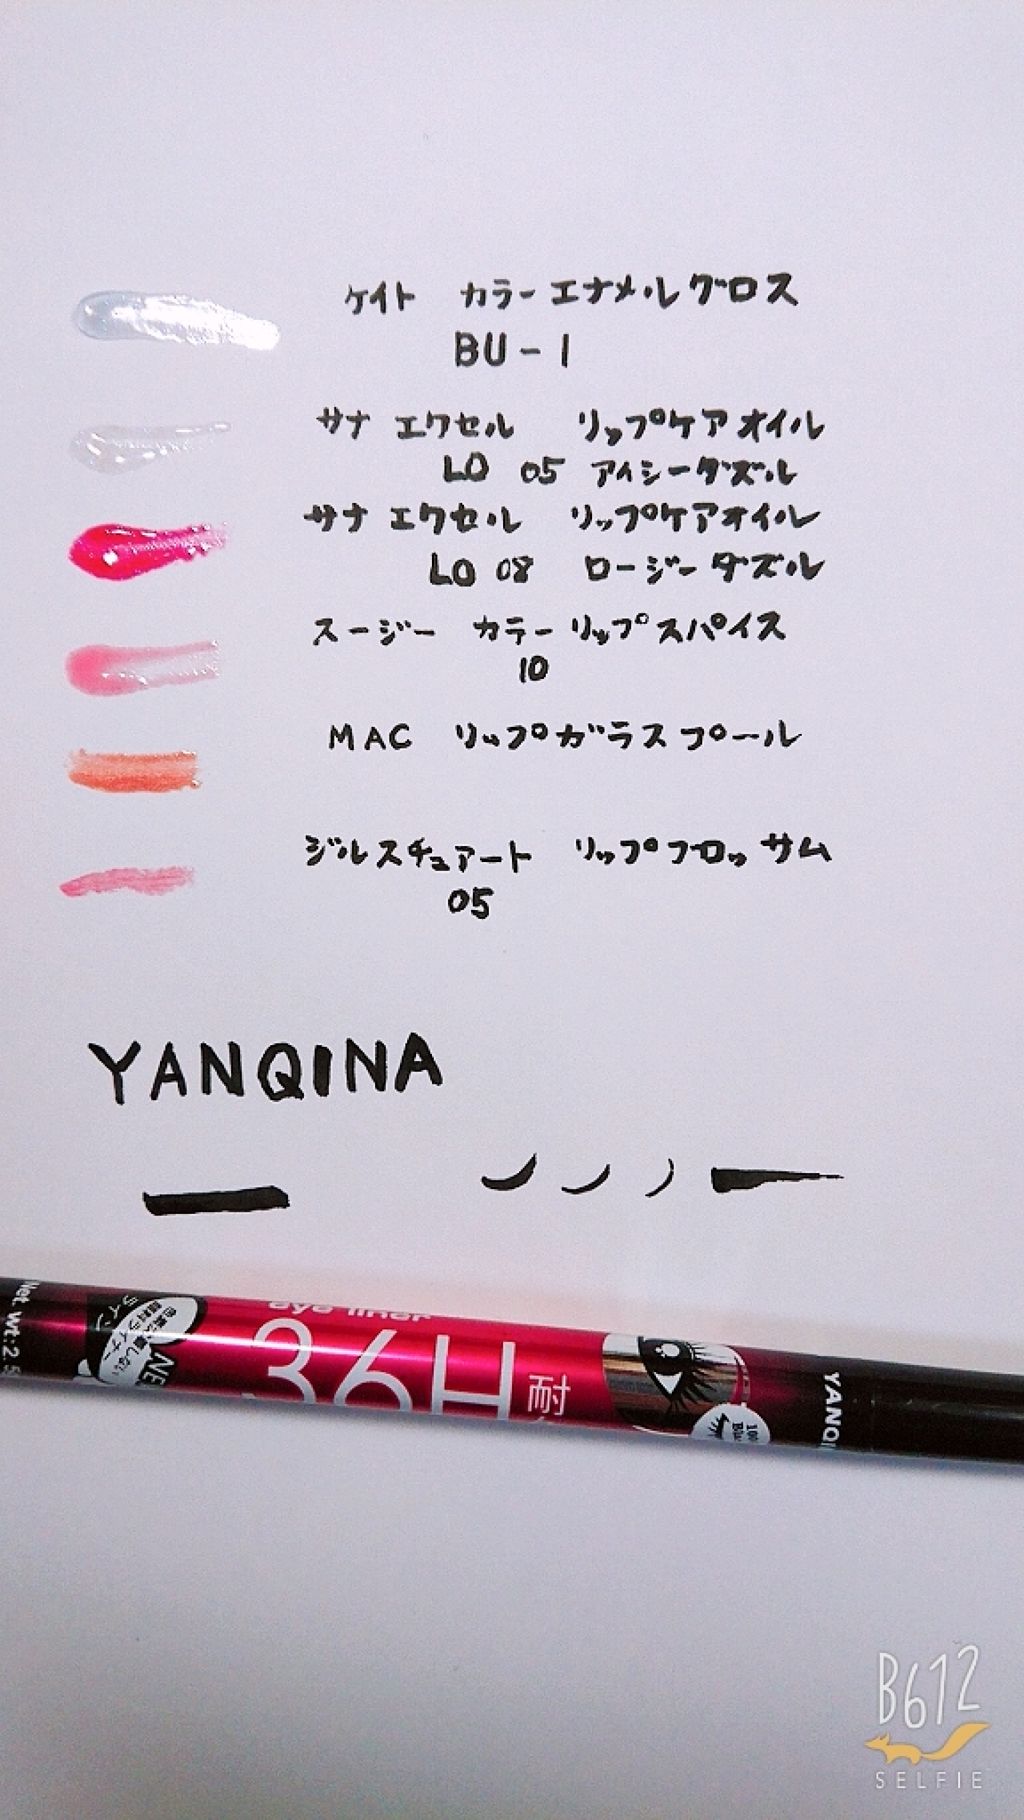 ケイト カラーエナメルグロス
BU-1
サナ エクセル リップケアオイル
LO 05 アイシーダズル
サナ エクセル リップケアオイル
LO 08 ロージーダズル
スージー カラーリップスパイス
10
MAC リップガラスプール
ジルスチュアート リップフロッサム
05
YANQINA
eye liner
36H
耐
Net. Wt:2.5
NEW
YANQI
B612
SELFIE